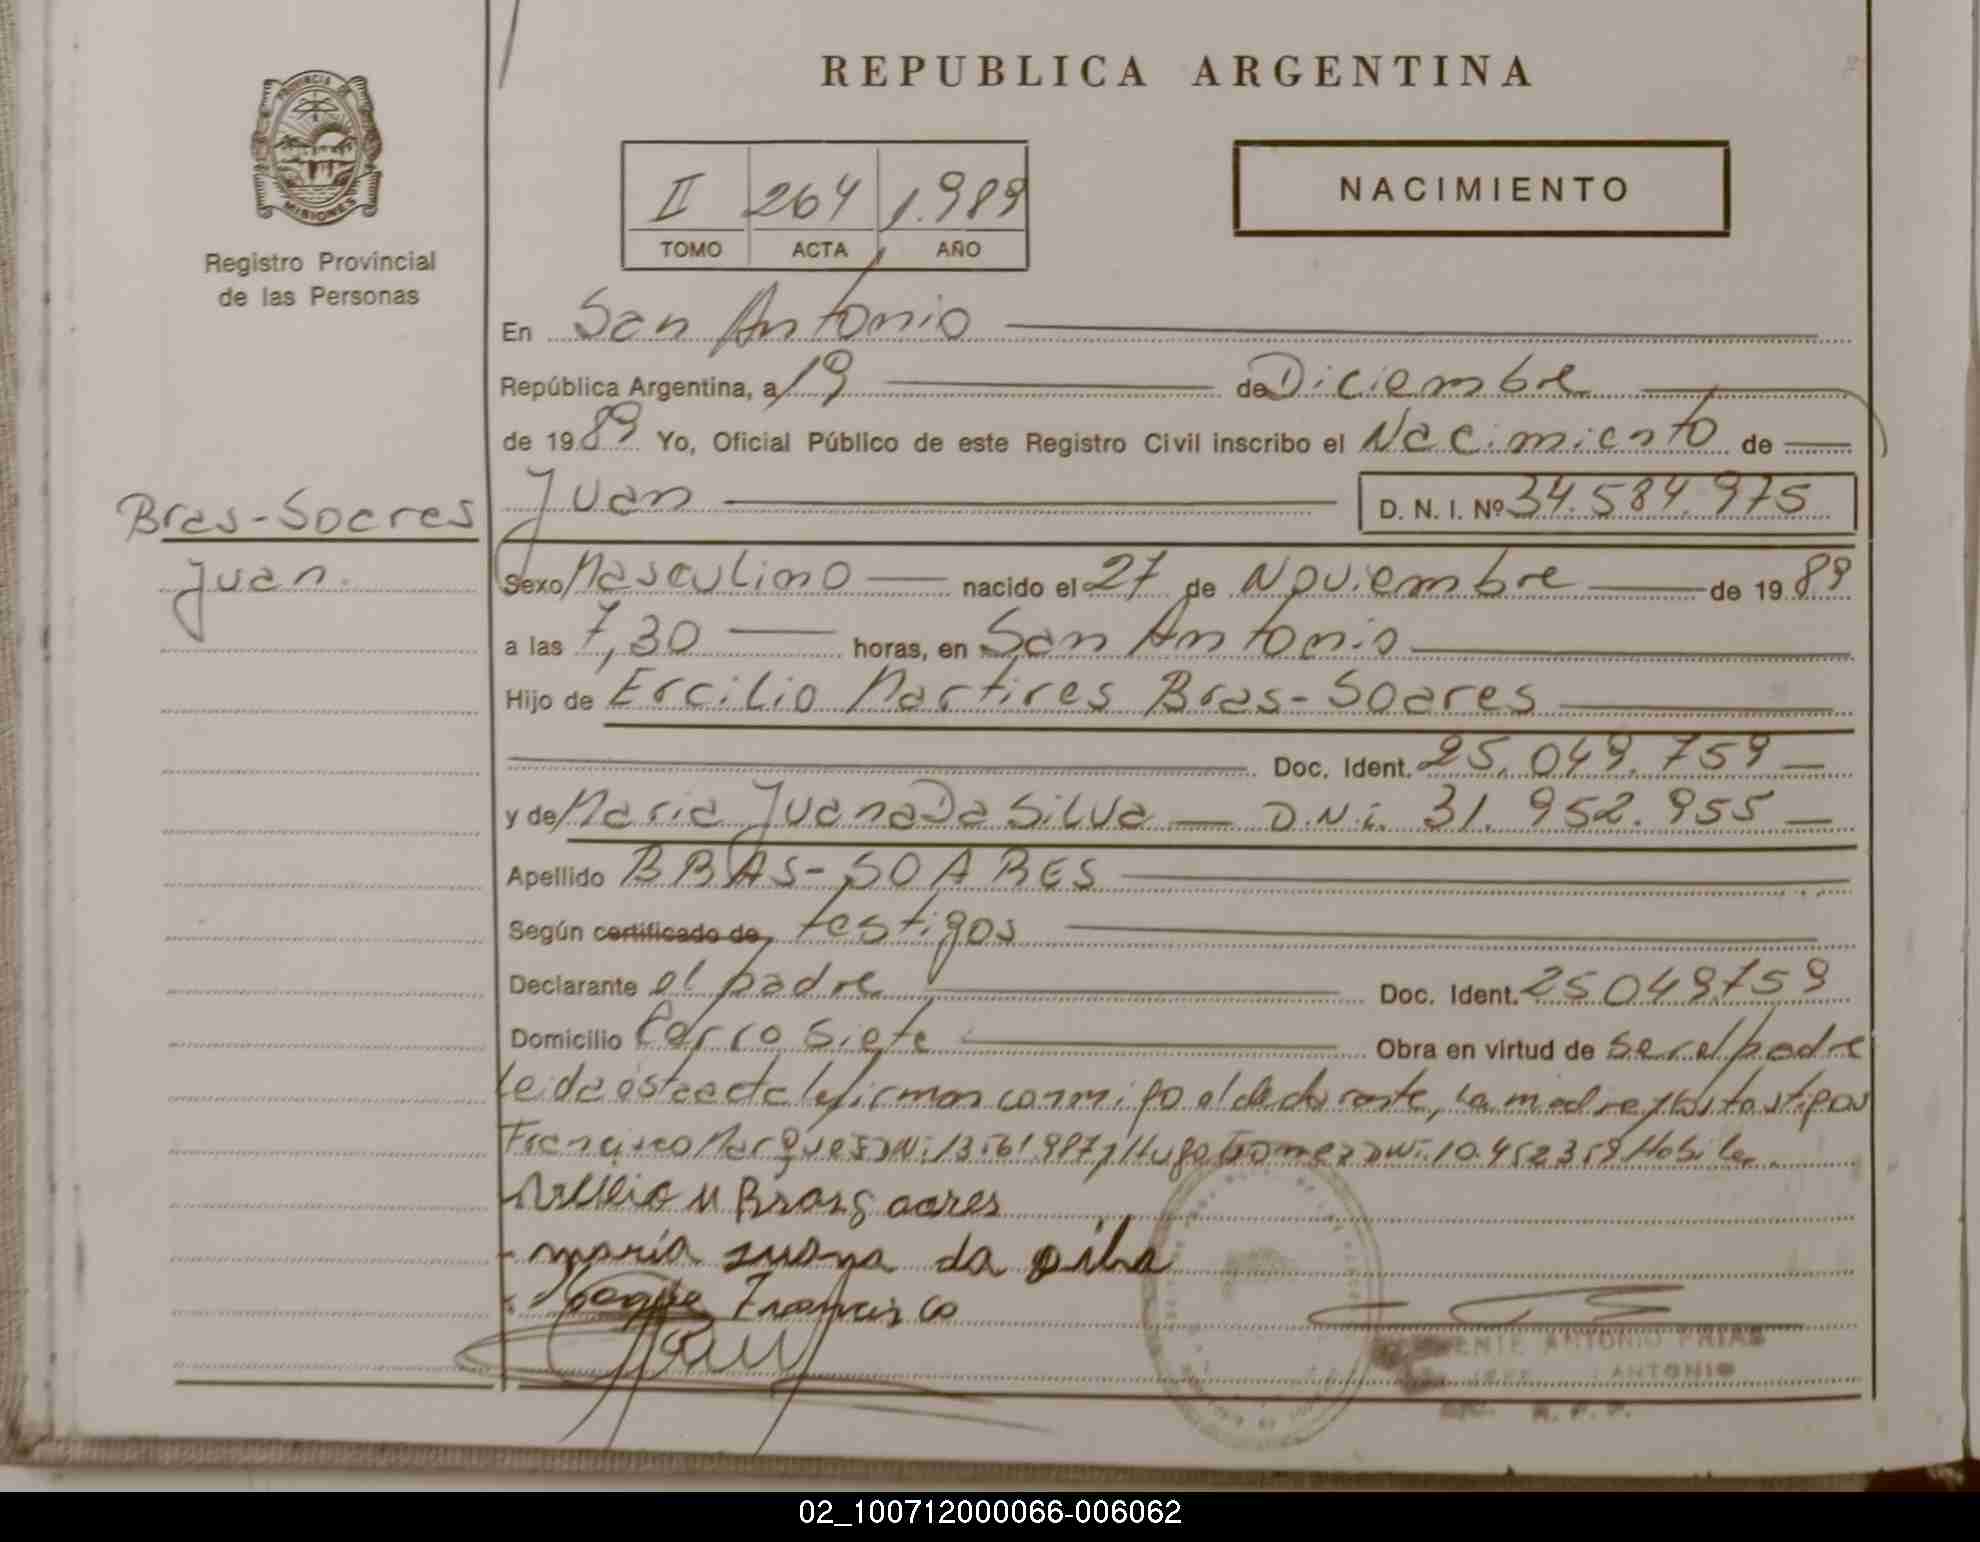 REPUBLICA ARGENTINA
PROVINCIA DE
MISIONES
Registro Provincial
de las Personas
II 264 1.989
TOMO ACTA AÑO
NACIMIENTO
En San Antonio
República Argentina, a 19 de Diciembre
de 1989 Yo, Oficial Público de este Registro Civil inscribo el Nacimiento de
Juan D. N. I. Nº 34.584.975
Bras-Soares
Juan.
Sexo Masculino nacido el 27 de Noviembre de 1989
a las 7,30 horas, en San Antonio
Hijo de Ercilio Martires Bras-Soares
Doc. Ident. 25.049.759
y de Maria Juana Da Silva D.N.i. 31.952.955
Apellido BRAS-SOARES
Según certificado de testigos
Declarante el padre Doc. Ident. 25049759
Domicilio Cerro Siete Obra en virtud de ser el padre
Leida ésta acta la firman conmigo el declarante, la madre y los testigos
Francisco Marques DNi. 13.561.987 y Hugo Gomez DNi. 10.452359 Habiles
M Bras Soares
maria Juana da silva
Francisco
ANTONIO FRIAS
ANTONIO
R. P. P.
02_100712000066-006062